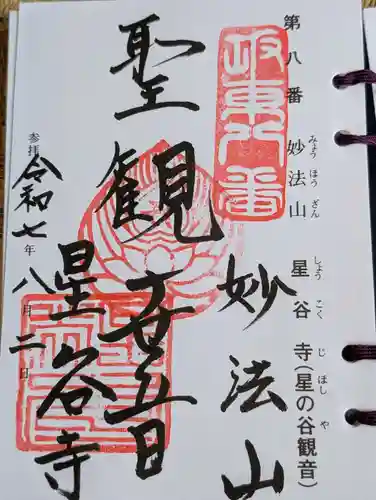 第八番 妙法山 星谷寺(星の谷観音)
みょう ほう ざん しょう こく じ ほし や
坂東八番
妙法山
聖観世音
星谷寺
参拝 令和七年八月二日